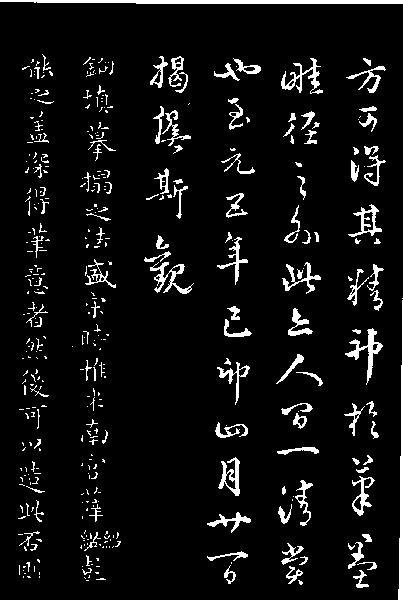 方可得其精神於筆墨
畦徑之外此亦人間一清賞
也至元五年己卯四月廿一日
揭傒斯觀
鉤填摹搨之法盛宋時惟米南宮薛紹彭
能之蓋深得筆意者然後可以造此否則